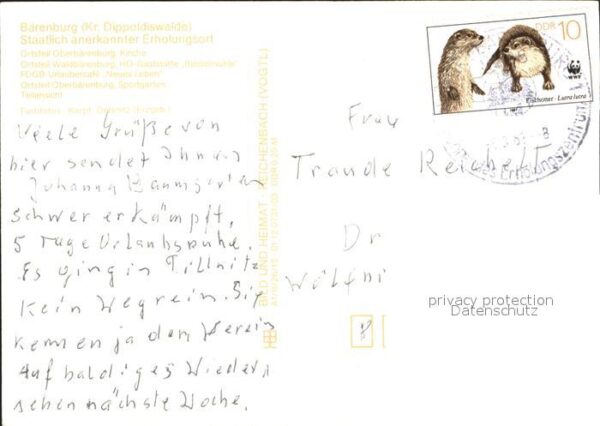 Bärenburg (Kr. Dippoldiswalde)
Staatlich anerkannter Erholungsort
Ortsteil Oberbärenburg, Kirche
Ortsteil Waldbärenburg, HO-Gaststätte
FDGB-Urlaubercafé "Neues Leben"
Ortsteil Oberbärenburg, Sportgarten
Teilansicht
Viele Grüße von
hier sendet Ihnen
Johanna
schwer erkämpft,
5 Tage Urlaubsruhe.
Es ging in Pillnitz
kein Weg rein. Sie
kennen ja den Kreis
Auf baldiges Wieder
sehen nächste Woche.
BILD UND HEIMAT REICHENBACH (VOGTL)
DDR 10
Fischotter · Lutra lutra
WWF
Erholungszentrum
Frau
Traude Reichelt
Dr
privacy protection
Datenschutz